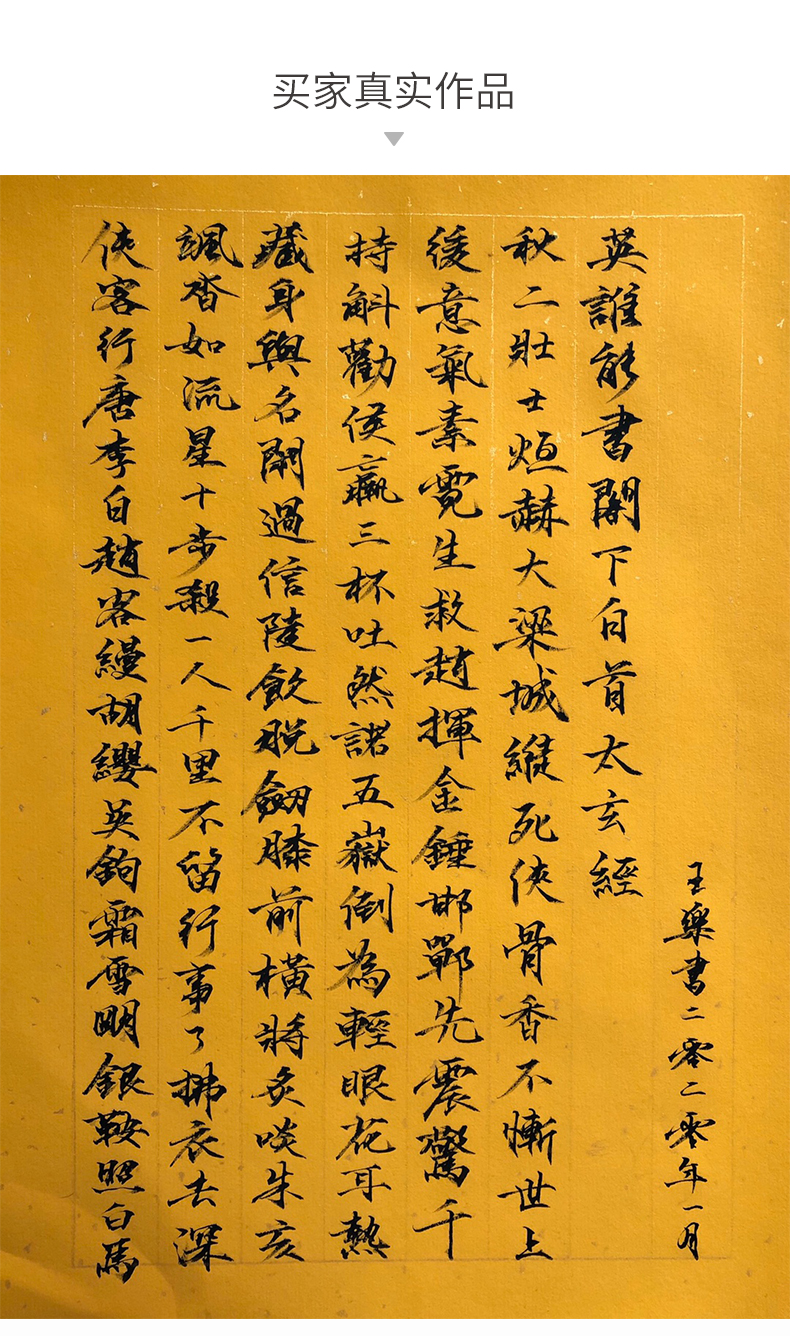 买家真实作品
俠客行唐李白趙客縵胡纓英鉤霜雪明銀鞍照白馬
颯沓如流星十步殺一人千里不留行事了拂衣去深
藏身與名閑過信陵飲脫劒膝前橫將炙啖朱亥
持斛勸侯嬴三杯吐然諾五嶽倒為輕眼花耳熱
後意氣素霓生救趙揮金錘邯鄲先震驚千
秋二壯士烜赫大梁城縱死俠骨香不慚世上
英誰能書閣下白首太玄經
王樂書二零二零年一月